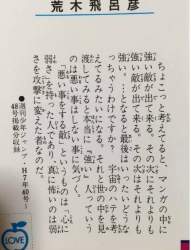 荒木飛呂彦
ちょこっと考えてると、マンガの中に
強い敵が出て来る。その次にそれよりも
強い敵が出て来る。その次はそれよりも
強い…となると最後はいったいどうな
っちゃうわけですか？宇宙のハテを考
えてるみたいになる。それと世の中を見
渡してみると本当に〝強い〟っていう
のは悪い事はしない事に気づく。
「悪い事をする敵」というものは「心に
弱さ」を持った人であり、真に怖いのは弱
さを攻撃に変えた者なのだ。
●週刊少年ジャンプ・H7年40号～
48号掲載分収録
LOVE